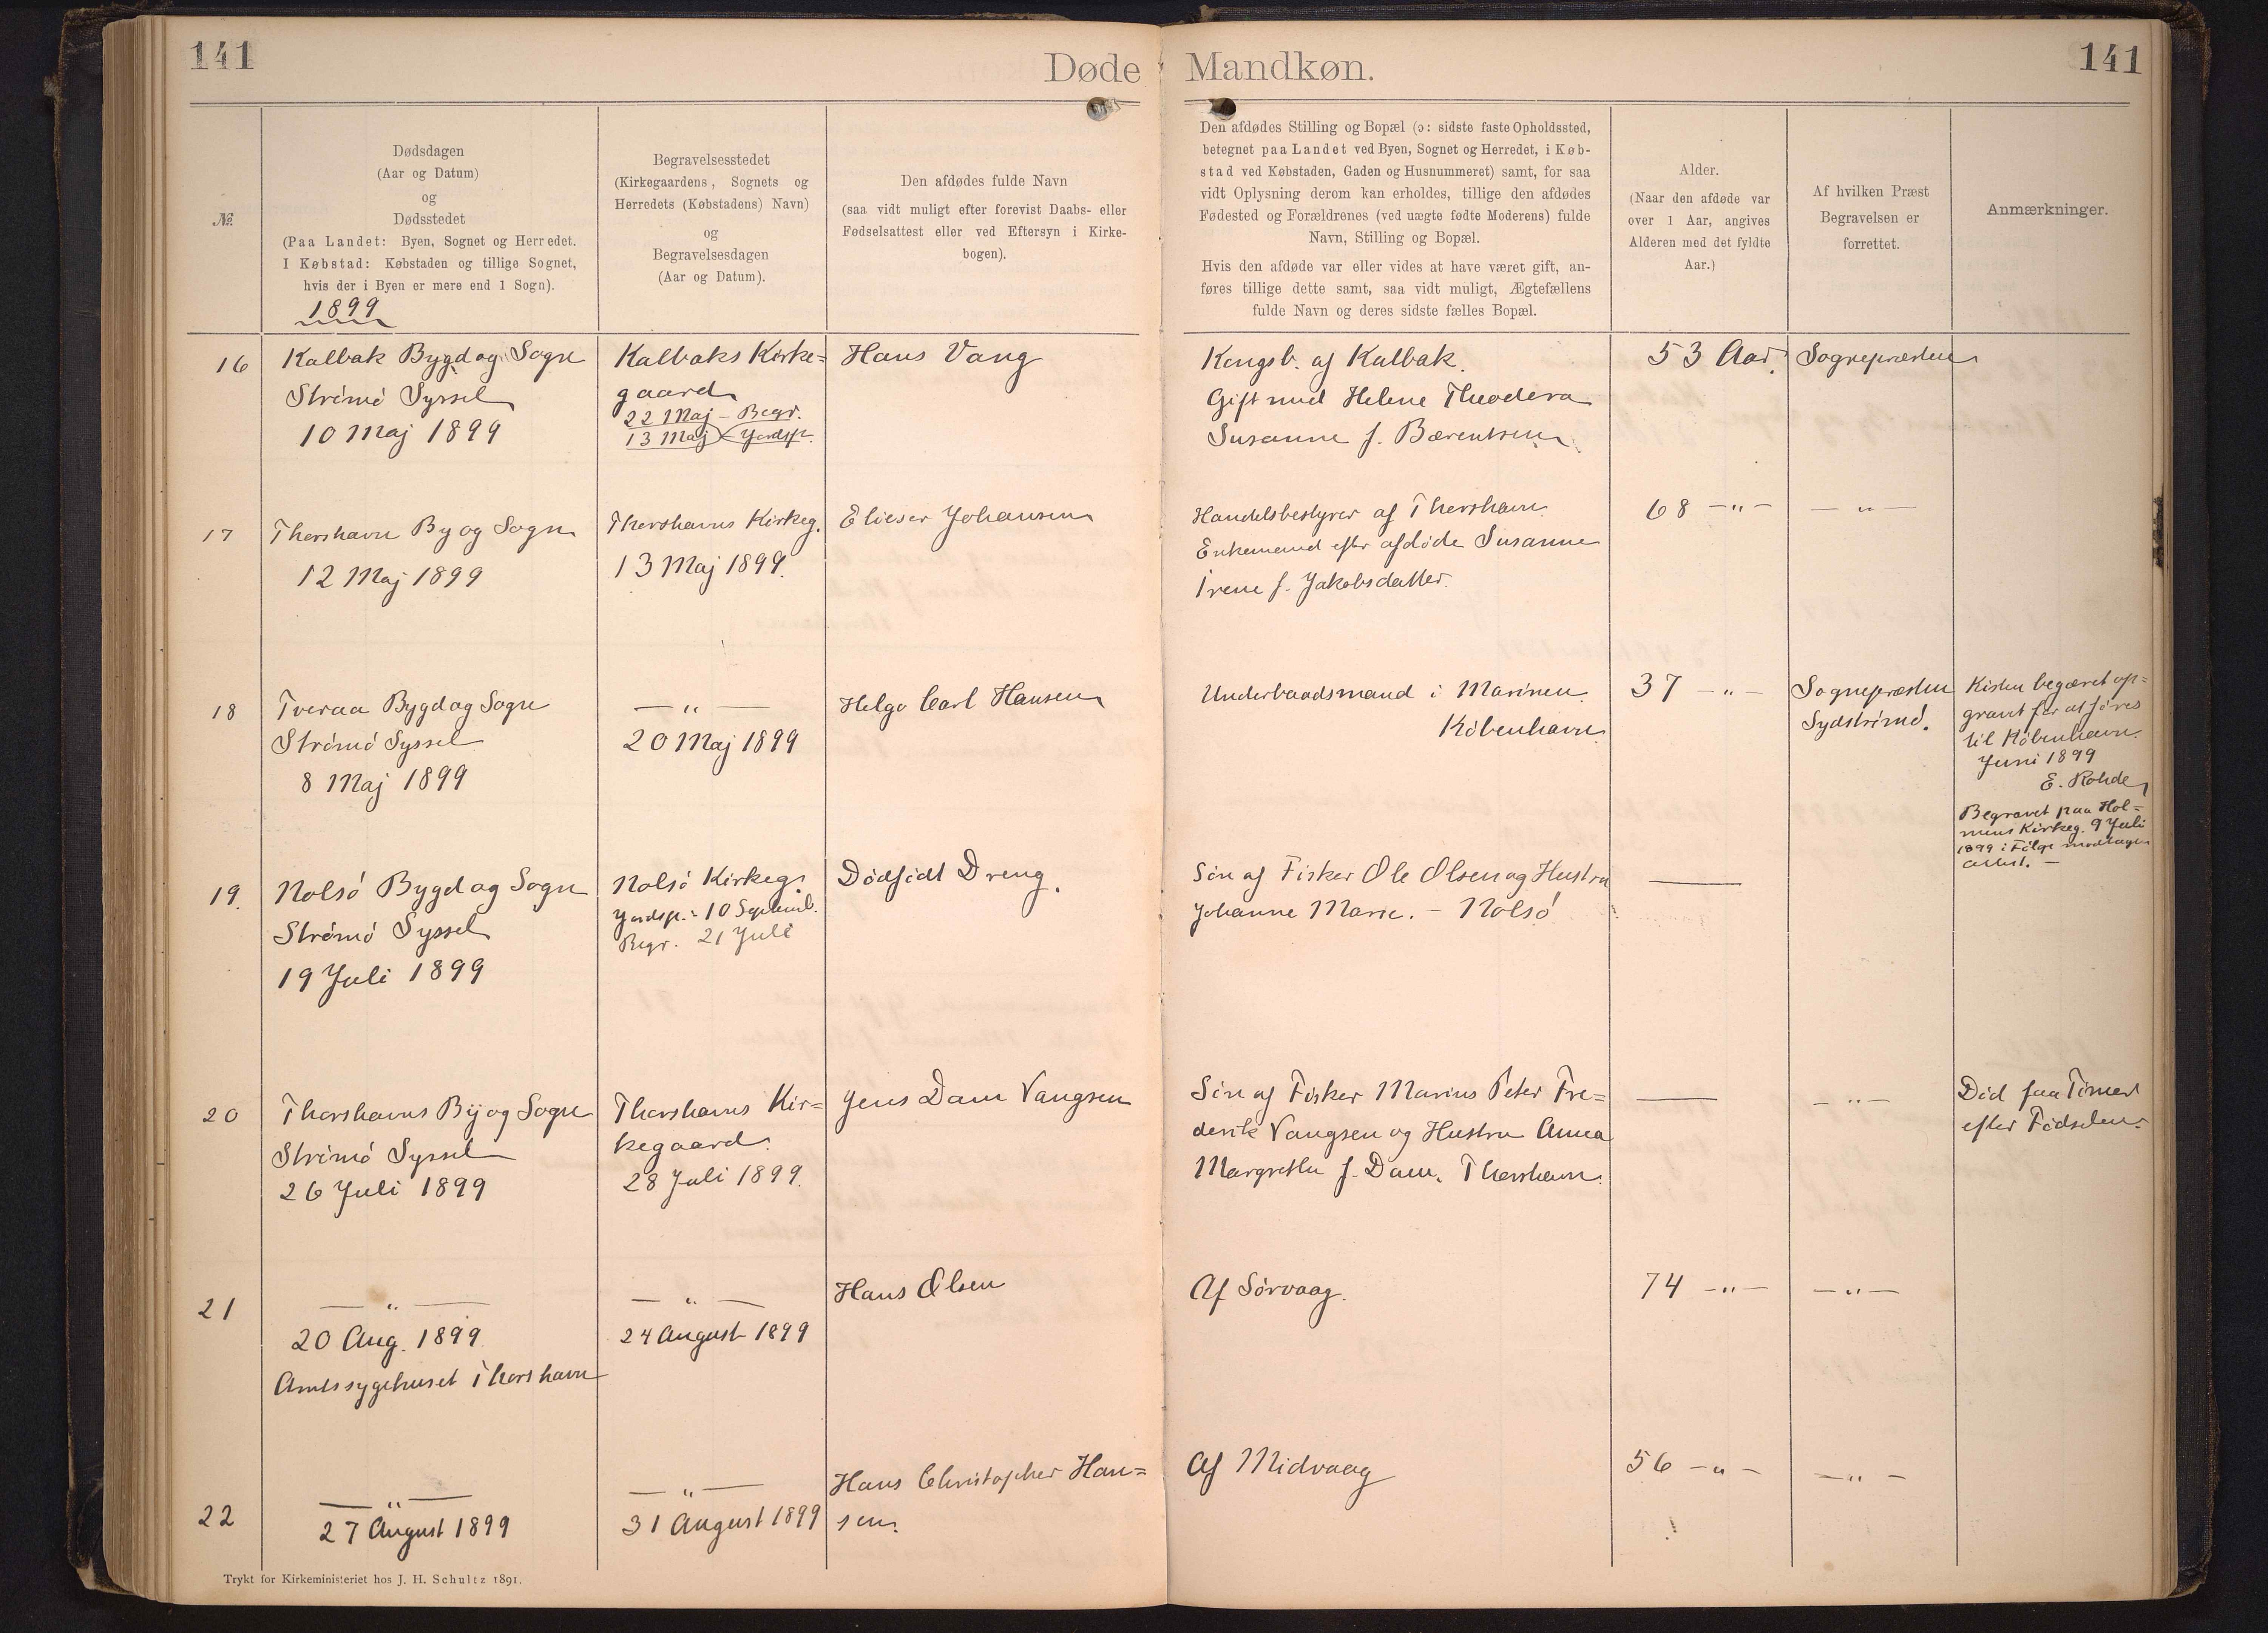 141
Døde Mandkøn.
141
№.
Dødsdagen
(Aar og Datum)
og
Dødsstedet
(Paa Landet: Byen, Sognet og Herredet.
I Købstad: Købstaden og tillige Sognet,
hvis der i Byen er mere end 1 Sogn).
1899
Begravelsesstedet
(Kirkegaardens, Sognets og
Herredets (Købstadens) Navn)
og
Begravelsesdagen
(Aar og Datum).
Den afdødes fulde Navn
(saa vidt muligt efter forevist Daabs- eller
Fødselsattest eller ved Eftersyn i Kirke-
bogen).
Den afdødes Stilling og Bopæl (ɔ: sidste faste Opholdssted,
betegnet paa Landet ved Byen, Sognet og Herredet, i Køb-
stad ved Købstaden, Gaden og Husnummeret) samt, for saa
vidt Oplysning derom kan erholdes, tillige den afdødes
Fødested og Forældrenes (ved uægte fødte Moderens) fulde
Navn, Stilling og Bopæl.
Hvis den afdøde var eller vides at have været gift, an-
føres tillige dette samt, saa vidt muligt, Ægtefællens
fulde Navn og deres sidste fælles Bopæl.
Alder.
(Naar den afdøde var
over 1 Aar, angives
Alderen med det fyldte
Aar.)
Af hvilken Præst
Begravelsen er
forrettet.
Anmærkninger.
16
Kalbak Bygd og Sogn
Strømø Syssel
10 Maj 1899
Kalbaks Kirke=
gaard
22 Maj - Begr.
13 Maj - Jordsp.
Hans Vang
Kongsb. af Kalbak.
Gift med Helene Theodora
Susanne f. Bærentsen
53 Aar.
Sognepræsten
17
Thorshavn By og Sogn
12 Maj 1899
Thorshavns Kirkeg.
13 Maj 1899.
Elieser Johansen
Handelsbestyrer af Thorshavn
Enkemand efter afdøde Susanne
Irene f. Jakobsdatter.
68 — " —
— " —
18
Tveraa Bygd og Sogn
Strømø Syssel
8 Maj 1899
— " —
20 Maj 1899
Helge Carl Hansen
Underbaadsmand i Marinen
København.
37 — " —
Sognepræsten
Sydstrømø.
Kisten begæret op=
gravet for at føres
til København.
Juni 1899
E. Rohde
Begravet paa Hol=
mens Kirkeg. 9 Juli
1899 i Følge modtagen
Attest. —
19.
Nolsø Bygd og Sogn
Strømø Syssel
19 Juli 1899
Nolsø Kirkeg.
Jordsp. - 10 Septemb.
Begr. 21 Juli
Dødfødt Dreng.
Søn af Fisker Ole Olsen og Hustru
Johanne Marie. - Nolsø
—
20
Thorshavns By og Sogn
Strømø Syssel
26 Juli 1899
Thorshavns Kir=
kegaard.
28 Juli 1899.
Jens Dam Vangsen
Søn af Fisker Marius Peter Fre=
derik Vangsen og Hustru Anna
Margrethe f. Dam. Thorshavn.
—
— " —
Død faa Timer
efter Fødselen.
21
— " —
20 Aug. 1899
Amtssygehuset Thorshavn
— " —
24 August 1899
Hans Olsen
Af Sørvaag.
74 — " —
— " —
22
— " —
27 August 1899
— " —
31 August 1899
Hans Christopher Han=
sen.
Af Midvaag
56 — " —
— " —
Trykt for Kirkeministeriet hos J. H. Schultz 1891.